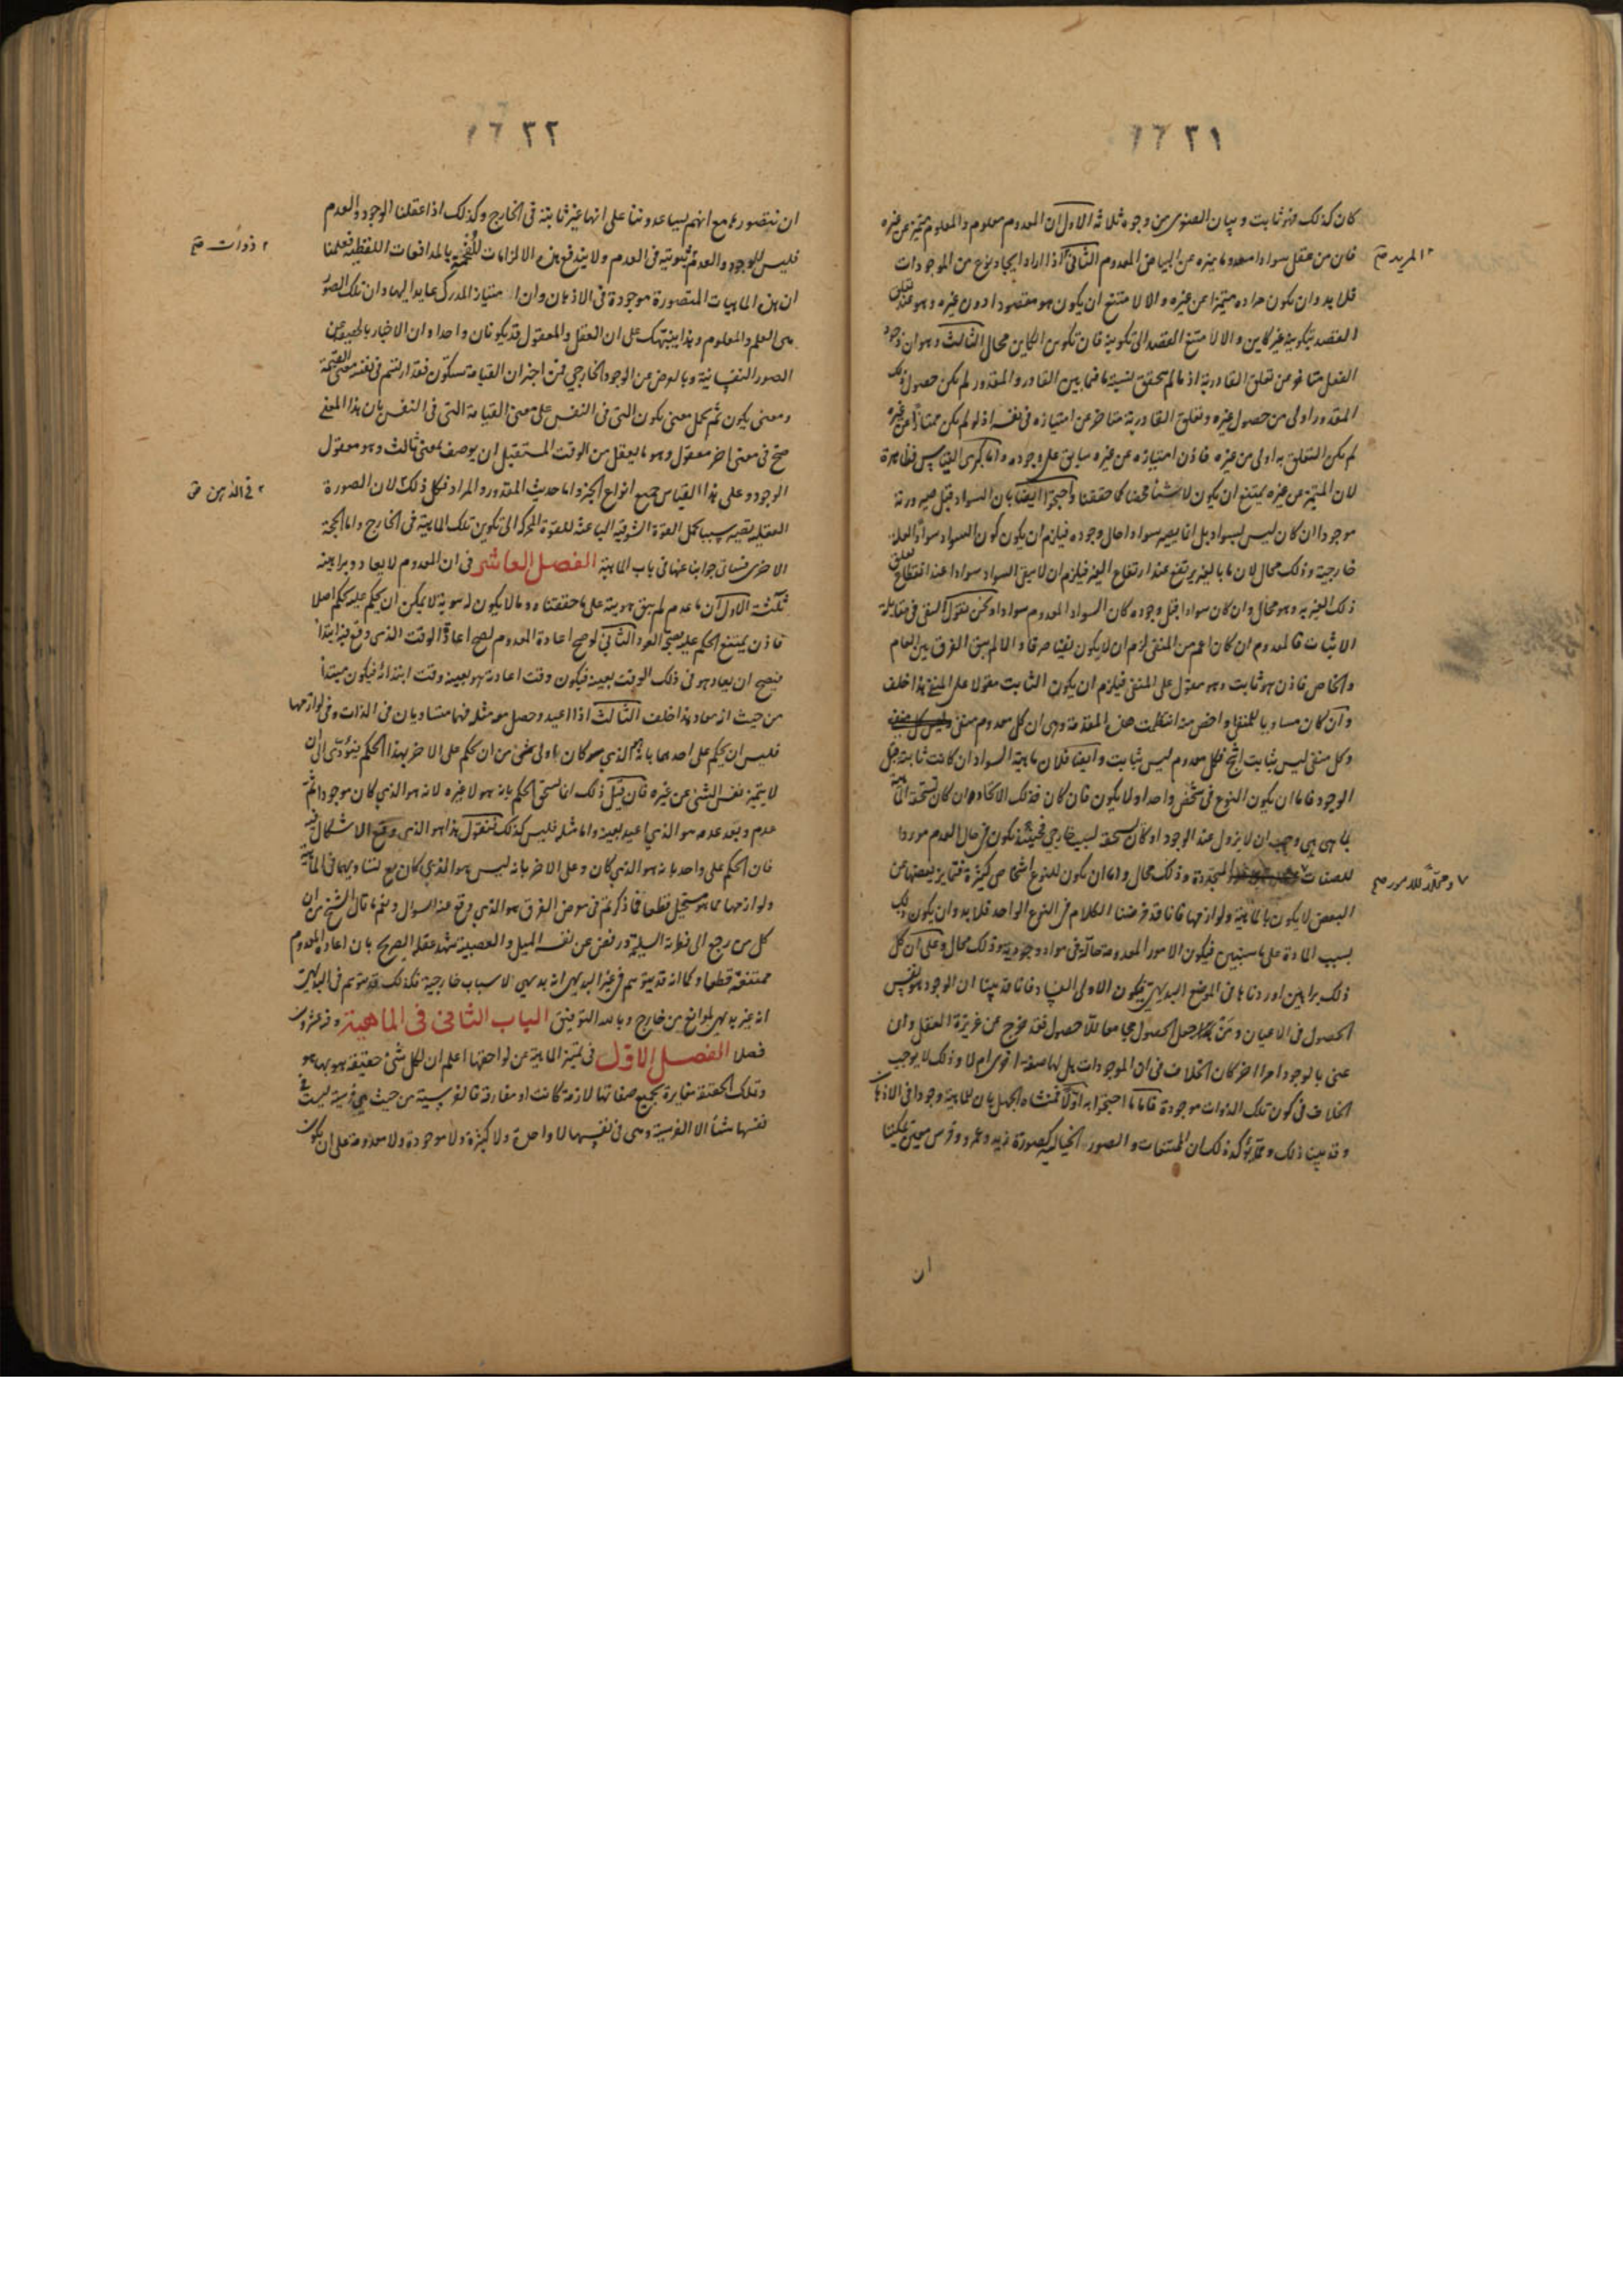 ١٦٣١
كان كذلك فهو ثابت وبيان الصغرى من وجوه ثلاثة الاول ان المعدوم معلوم والمعلوم متميز عن غيره
فان من عقل سوادا معدوما ميزه عن البياض المعدوم الثانى اذا اراد ايجاد نوع من الموجودات
٢ المريد صح
فلا بد وان يكون مراده متميزا عن غيره والا لامتنع ان يكون هو مقصودا دون غيره وهو عند تعلق
القصد بتكوينه غير كاين والا لامتنع القصد الى تكوينه فان تكوين الكاين محال الثالث وهو ان وجود
الفعل متاخر عن تعلق القادرية اذ ما لم يتحقق نسبة ما فيما بين القادر والمقدور لم يكن حصول ذلك
المقدور اولى من حصول غيره وتعلق القادرية متاخر عن امتيازه فى نفسه اذ لو لم يكن ممتازا عن غيره
لم يكن التعلق به اولى من غيره فاذن امتيازه عن غيره سابق على وجوده واما كبرى القياس فظاهرة
لان المتميز عن غيره يمتنع ان يكون لا شيئا محضا كما حققنا واحتجوا ايضا بان السواد قبل صيرورته
موجودا ان كان ليس بسواد بل انما يصير سوادا حال وجوده فيلزم ان يكون كون السواد سوادا لعلة
خارجية وذلك محال لان ما بالغير يرتفع عند ارتفاع الغير فيلزم ان لا يبقى السواد سوادا عند انقطاع تعلق
ذلك الغير به وهو محال وان كان سوادا قبل وجوده كان السواد المعدوم سوادا ونحن نقول النفى فى مقابلة
الاثبات فالمعدوم ان كان اعم من المنفى لزم ان لا يكون نفيا صرفا والا لم يبق الفرق بين العام
والخاص فاذن هو ثابت وهو مقول على المنفى فيلزم ان يكون الثابت مقولا على المنفى هذا خلف
وان كان مساويا للمنفى او اخص منه انتظمت هذه المقدمة وهى ان كل معدوم منفى
وكل منفى ليس بثابت انتج فكل معدوم ليس بثابت وايضا فلان ماهية السواد ان كانت ثابتة قبل
الوجود فاما ان يكون النوع فى شخص واحد او لا يكون فان كان فذلك الاتحاد ان كان تستحقه الماهية
لما هى هى وجب ان لا يزول عند الوجود او كان تستحقه لسبب خارجى فحينئذ يكون فى حال العدم موردا
للصفات المتجددة وذلك محال واما ان يكون للنوع اشخاص كثيرة فتمايز بعضها عن
٧ ومحلا للامور صح
البعض لا يكون بالماهية ولوازمها فانا قد فرضنا الكلام فى النوع الواحد فلا بد وان يكون ذلك
بسبب المادة على ما سنبين فيكون الامور المعدومة حالة فى مواد وجودية وذلك محال وعلى ان كل
ذلك براهين اوردناها فى الموضع البديهى فيكون الاولى الغيا دفا فقد بينا ان الوجود هو نفس
الحصول فى الاعيان ومن جعل الحصول مجامعا للا حصول فقد خرج عن غريزة العقل وان
عنى بالوجود امرا اخر كان الخلاف فى ان الموجودات هل لها صفة اخرى ام لا وذلك لا يوجب
الخلاف فى كون تلك الذوات موجودة فاما ما احتجوا به اولا فمنشاه الجهل بان للماهية وجودا فى الاذهان
وقد بينا ذلك ومما يؤكد ذلك ان الممتنعات والصور الخيالية كصورة زيد وعمرو وفرس معين يمكننا
ان
١٦٣٢
ان نتصورها مع انهم يساعدوننا على انها غير ثابتة فى الخارج وكذلك اذا عقلنا الوجود والعدم
فليس للوجود والعدم ثبوتية فى العدم ولا يندفع هذه الالزامات المفحمة بالمدافعات اللفظية فعلمنا
٢ ذوات صح
ان هذه الماهيات المتصورة موجودة فى الاذهان وان امتياز المدرك عايد اليها وان تلك الصور
هى العلم والمعلوم وهذا ينبهك على ان العقل والمعقول قد يكونان واحدا وان الاخبار بالحقيقة عن
الصور النفسانية وبالعرض عن الوجود الخارجى فمن اخبر ان القيامة ستكون فقد ارتسم فى نفسه معنى القيمة
ومعنى يكون ثم يحمل معنى يكون التى فى النفس على معنى القيامة التى فى النفس بان هذا المعنى
صح فى معنى اخر معقول وهو ما يعقل من الوقت المستقبل ان يوصف بمعنى ثالث وهو معقول
الوجود وعلى هذا القياس جميع انواع الخبر واما حديث المقدور والمراد فكل ذلك ٢ لان الصورة
٢ فى الذهن صح
العقلية تصير سببا لحمل القوة الشوقية الباعثة للقوة المحركة الى تكوين تلك الماهية فى الخارج واما الحجة
الاخرى فسياتى جوابنا عنها فى باب الماهية الفصل العاشر فى ان المعدوم لا يعاد وبراهينه
ثلثة الاول ان ما عدم لم يبق هويته على ما حققناه وما لا يكون له هوية لا يمكن ان يحكم عليه بحكم اصلا
فاذن يمتنع الحكم عليه بصحة العود الثانى لو صح اعادة المعدوم لصح اعادة الوقت الذى وقع فيه ابتداء
فيصح ان يعاد هو فى ذلك الوقت بعينه فيكون وقت اعادته هو بعينه وقت ابتدائه فيكون مبتدأ
من حيث انه معاد هذا خلف الثالث اذا اعيد وحصل معه مثله فهما متساويان فى الذات وفى لوازمها
فليس ان يحكم على احدهما بانه الذى كان باولى من ان يحكم على الاخر بهذا الحكم فيؤدى الى ان
لا يتميز نفس الشئ عن غيره فان قيل ذلك انما يستحق الحكم بانه هو لا غيره لانه هو الذى كان موجودا ثم
عدم وبعد عدمه هو الذى اعيد بعينه واما مثله فليس كذلك فنقول هذا هو الذى وقع الاشكال فيه
فان الحكم على واحد بانه هو الذى كان وعلى الاخر بانه ليس هو الذى كان مع تساويهما فى الماهية
ولوازمها مما هو مستحيل قطعا فما ذكرتم فى معرض الفرق هو الذى وقع عنه السوال ونعم ما قال الشيخ من ان
كل من رجع الى فطرته السليمة ورفض عن نفسه الميل والعصبية شهد عقله الصريح بان اعادة المعدوم
ممتنعة قطعا وكما انه قد يتوهم فى غير البديهى انه بديهى لاسباب خارجية فكذلك قد يتوهم فى البديهى
انه غير بديهى لموانع من خارج وبالله التوفيق الباب الثانى فى الماهية وفيه عشرون
فصلا الفصل الاول فى تميز الماهية عن لواحقها اعلم ان لكل شئ حقيقة هو بها هو
وتلك الحقيقة مغايرة لجميع صفاتها لازمة كانت او مفارقة فالفرسية من حيث هى فرسية ليست فى
نفسها شيئا الا الفرسية وهى فى نفسها لا واحدة ولا كثيرة ولا موجودة ولا معدومة على ان يكون